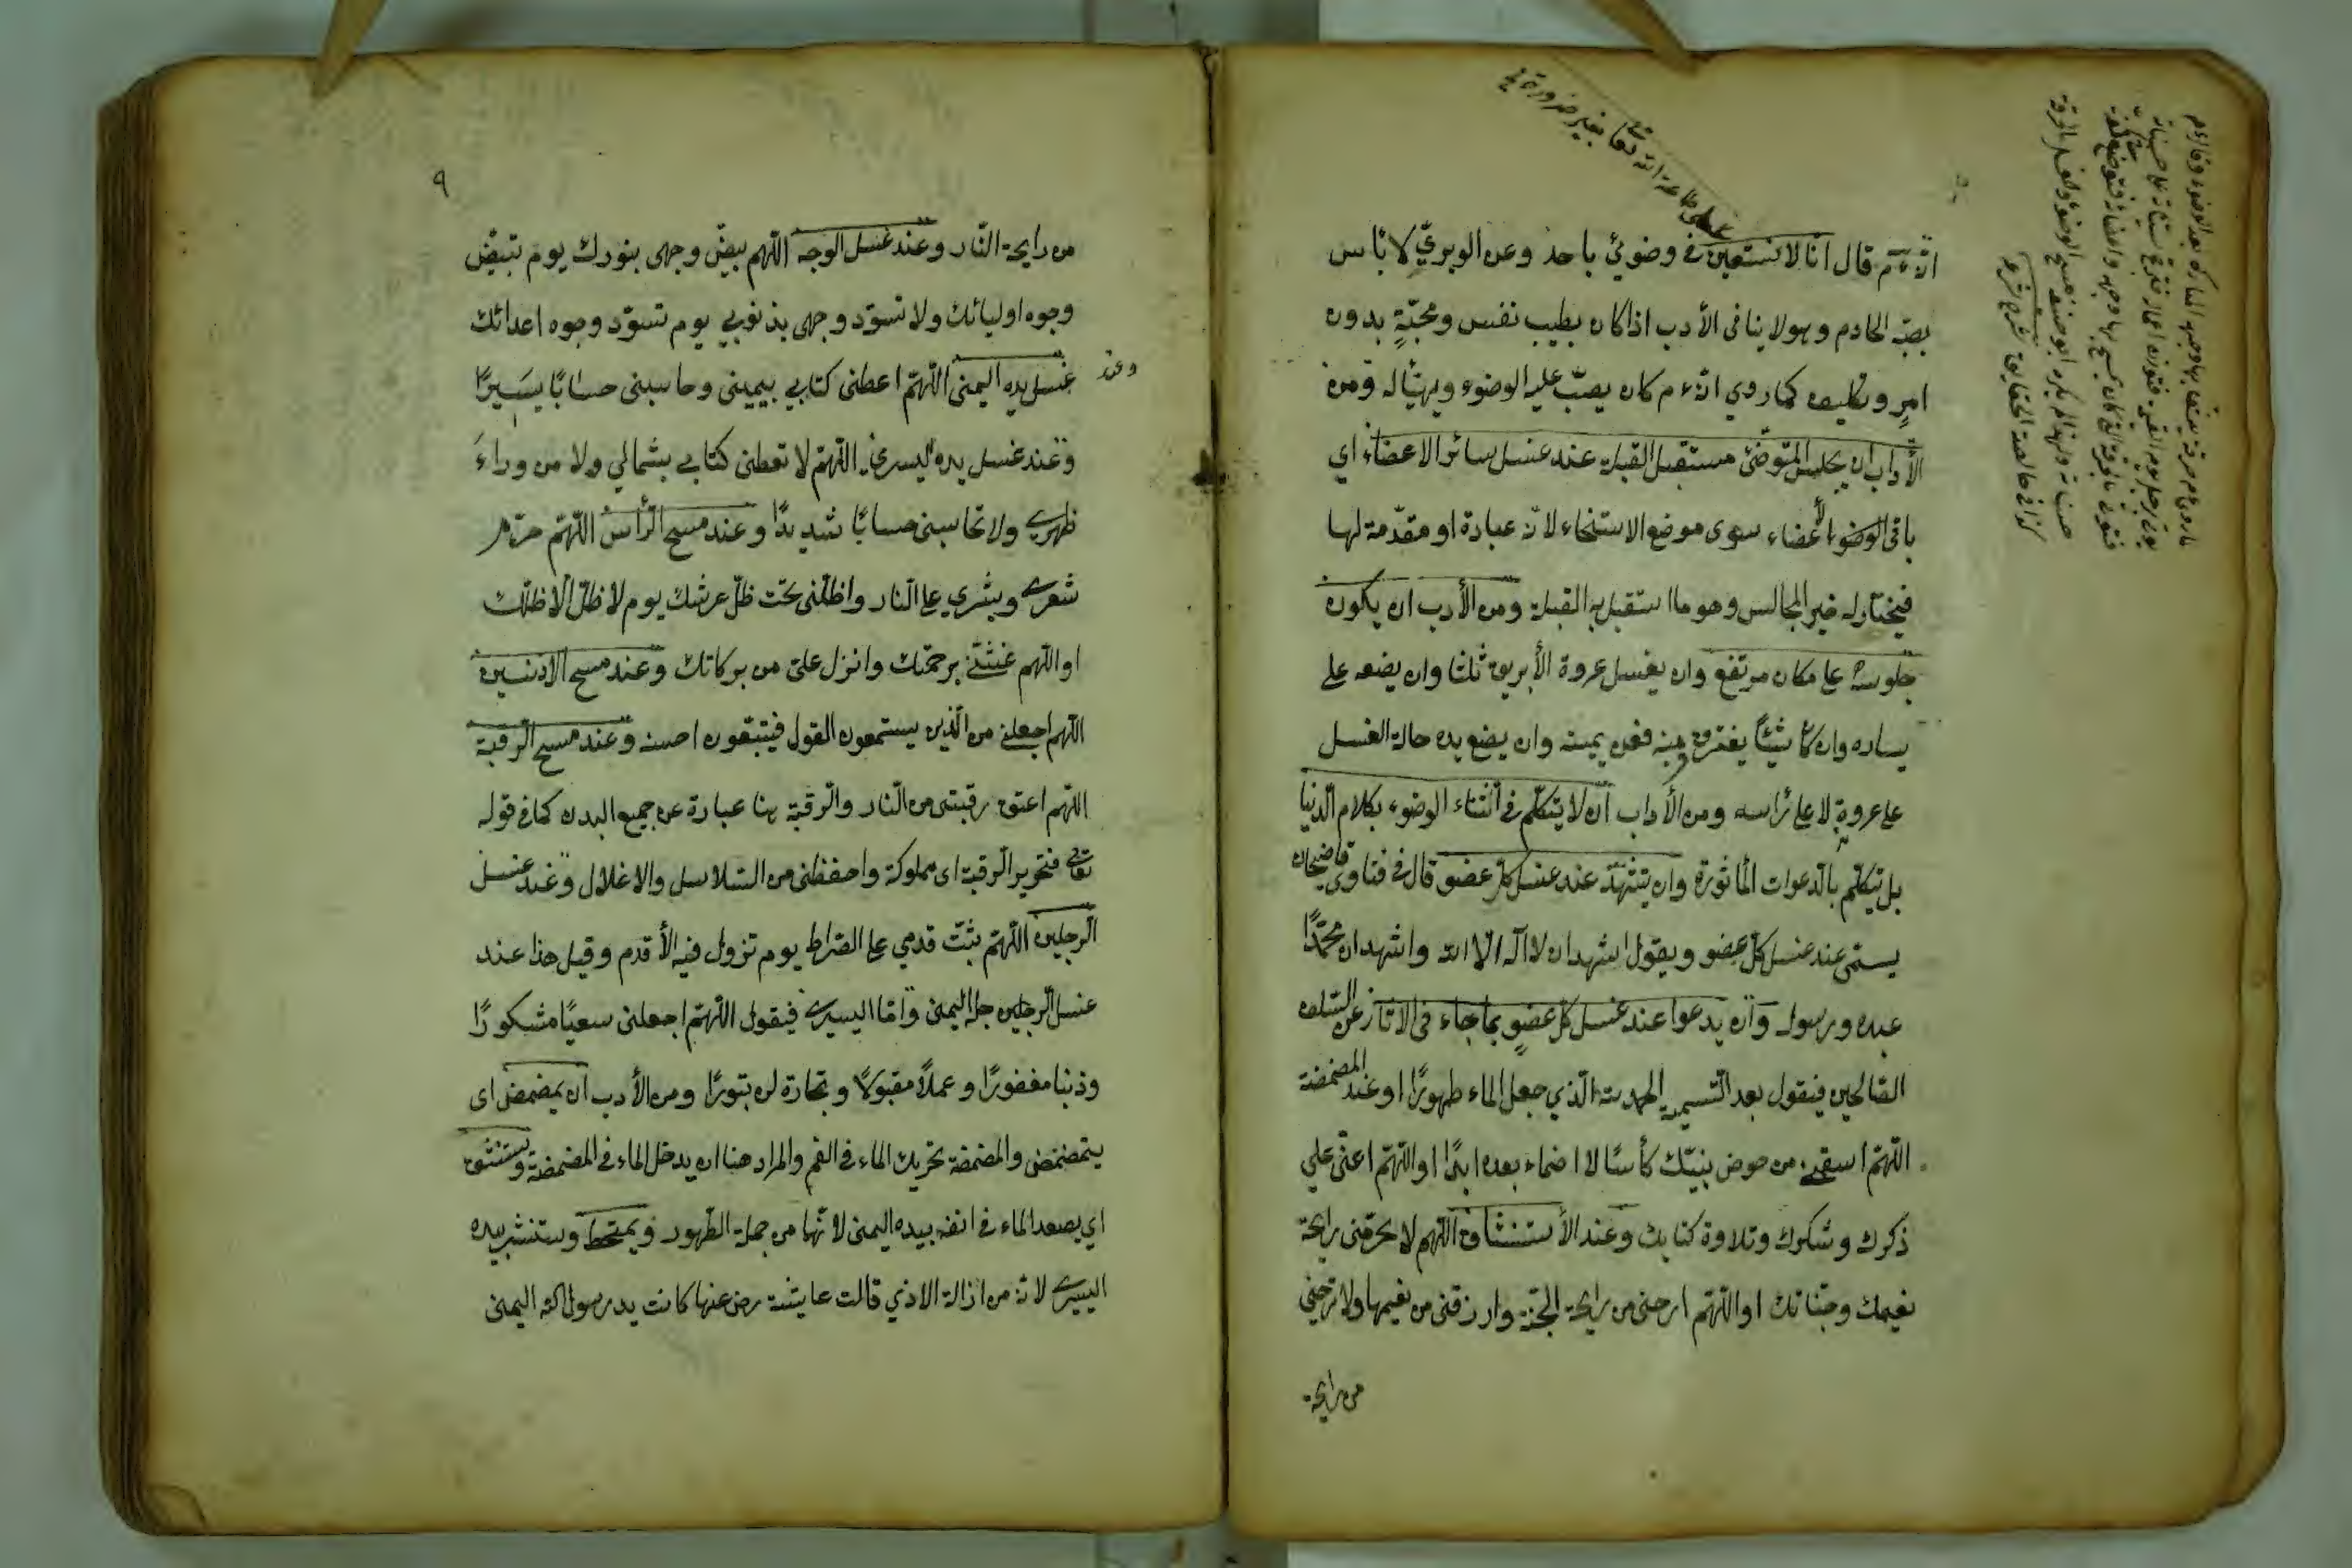 انه ءم قال انا لا نستعين في وضوئي باحد وعن الوبري لا باس
بصبّ الخادم وهو لا ينافى الأدب اذا كان بطيب نفس ومحبّةٍ بدون
امرٍ وتكليف كما روي انه ءم كان يصبّ عليه الوضوء ويهيّأ له ومن
الأداب ان يجلس المتوضّئ مستقبل القبلة عند غسل سائر الاعضاء اى
باقى الوضوء الأعضاء سوى موضع الاستنجاء لانه عبادة او مقدّمة لها
فيختار له خير المجالس وهو ما استقبل به القبلة ومن الأدب ان يكون
جلوسه على مكان مرتفع وان يغسل عروة الأبريق ثلثا وان يضعه على
يساره وان كان شيئًا يغترف منه فعن يمينه وان يضع يده حالة الغسل
على عروته لا على رأسه ومن الأداب ان لا يتكلّم فى أثناء الوضوء بكلام الدّنيا
بل يتكلّم بالدعوات المأثورة وان يتشهّد عند غسل كل عضو قال فى فتاوى قاضيخان
يسمّى عند غسل كلّ عضو ويقول اشهد ان لا اله الا الله واشهد ان محمّدًا
عبده ورسوله وان يدعوا عند غسل كلّ عضوٍ بما جاء فى الاثار عن السّلف
الصّالحين فيقول بعد التّسمية الحمد لله الّذي جعل الماء طهورًا وعند المضمضة
اللّهمّ اسقنى من حوض نبيّك كأسًا لا اضماء بعده ابدًا او اللّهمّ اعنّى على
ذكرك وشكرك وتلاوة كتابك وعند الأستنشاق اللّهم لا تحرّمنى رايحة
نعيمك وجنّاتك او اللّهمّ ارحنى من رايحة الجنّة وارزقنى من نعيمها ولا ترحنى
من رايحة
على طاعة الله تعا بغير ضرورة
٩
من رايحة النّار وعند غسل الوجه اللّهم بيضّ وجهى بنورك يوم تبيضّ
وجوه اوليائك ولا تسوّد وجهى بذنوبي يوم تسوّد وجوه اعدائك
وعند
غسل يده اليمنى اللّهمّ اعطنى كتابي بيمينى وحاسبنى حسابًا يسيرًا
وعند غسل يده اليسرى اللّهمّ لا تعطنى كتابي بشمالي ولا من وراءَ
ظهرى ولا تحاسبنى حسابًا شديدًا وعند مسح الرّأس اللّهمّ حرّم
شعرى وبشري على النّار واظلّنى تحت ظلّ عرشك يوم لا ظلّ الّا ظلّك
او اللّهم غشّنى برحمتك وانزل علىّ من بركاتك وعند مسح الاذنين
اللهم اجعلنى من الّذين يستمعون القول فيتبّعون احسنه وعند مسح الرّقبة
اللّهم اعتق رقبتى من النّار والرّقبة هنا عبارة عن جميع البدن كما فى قوله
تعالى فتحرير الرّقبة اى مملوكة واحفظنى من السّلاسل والاغلال وعند غسل
الرجلين اللّهمّ ثبّت قدمي على الصّراط يوم تزول فيه الأقدم وقيل هذا عند
غسل الرّجلين جله اليمنى وامّا اليسرى فيقول اللّهمّ اجعلنى سعيًا مشكورًا
وذنبا مغفورًا وعملًا مقبولًا وتجارة لن تبورًا ومن الأدب ان يمضمض اى
يتمضمض والمضمضة تحريك الماء فى الفم والمراد هنا ان يدخل الماء فى المضمضة ويستنشق
اي يصعد الماء فى انفه بيده اليمنى لانّها من جملة الطّهور ويمتخط وستنشر بيده
اليسرى لانه من ازالة الاذي قالت عايشة رض عنها كانت يد رسول الله اليمنى